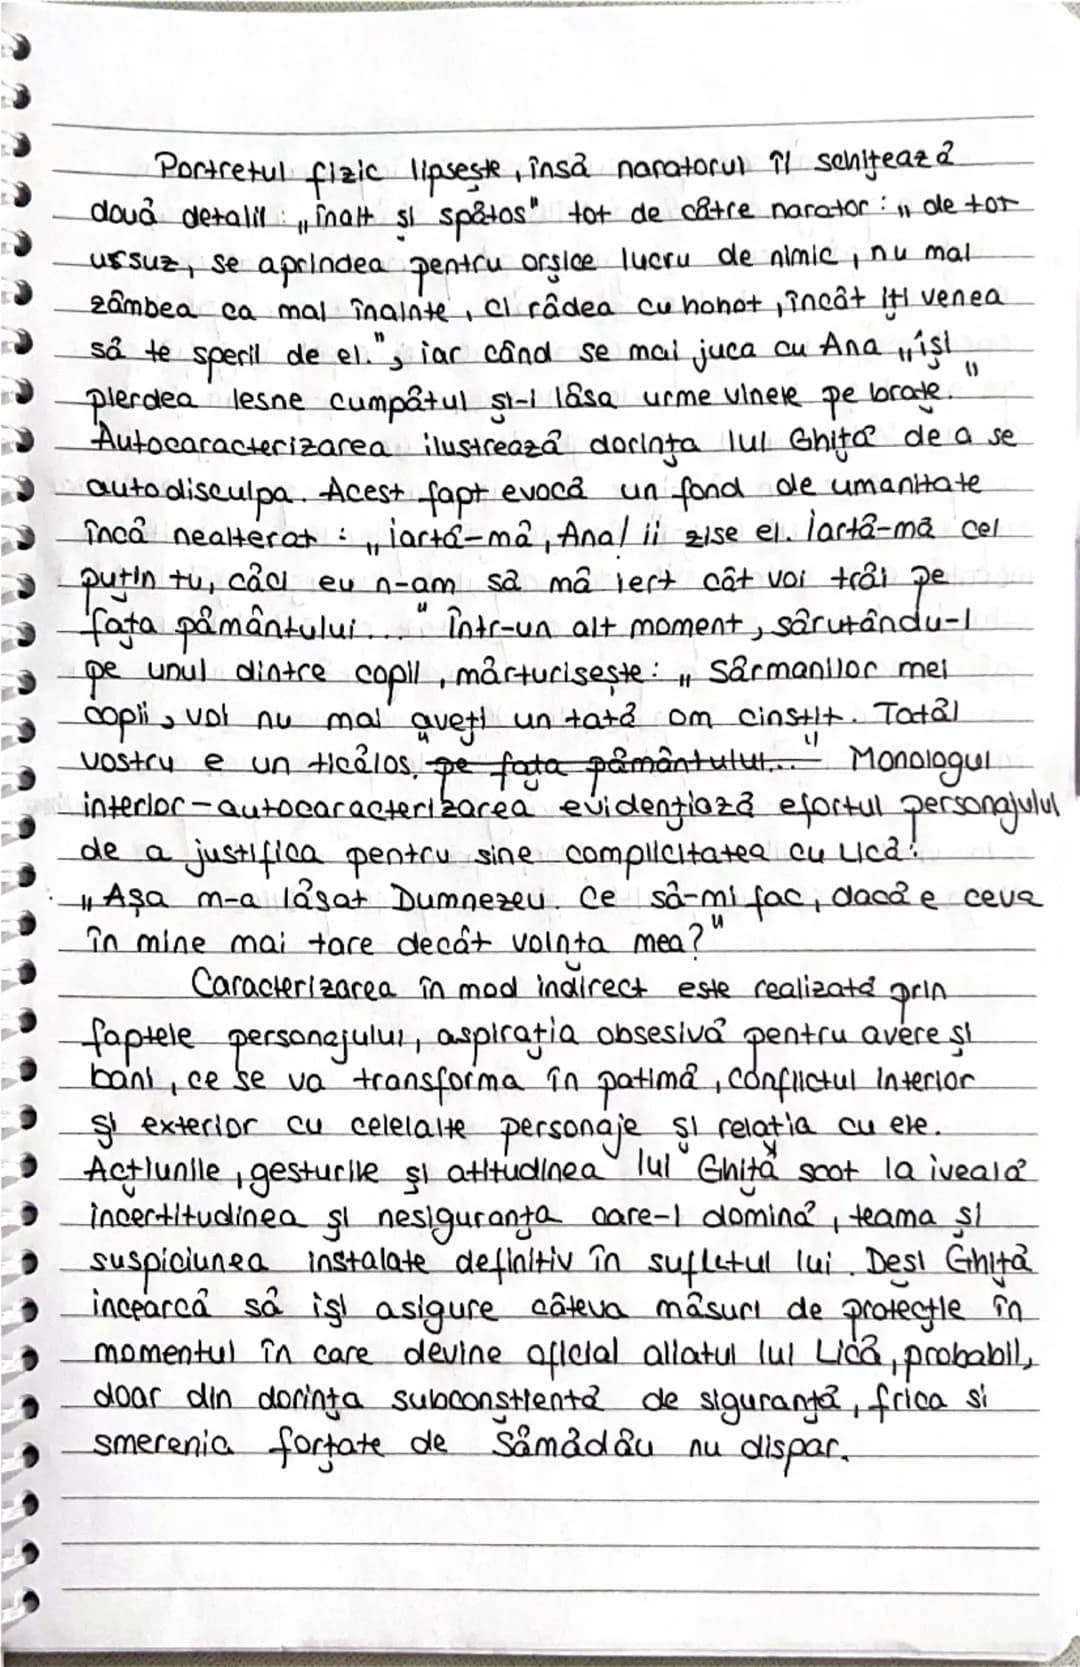 Portretul fizic lipsește, însă naratorul îl schițează
două detalii: „înalt și spătos" tot de către narator: „de tot
ursuz, se aprindea pentru orșice lucru de nimic, nu mai
zâmbea ca mai înainte, ci râdea cu hohot, încât iți venea
să te sperii de el."; iar când se mai juca cu Ana „își
pierdea lesne cumpătul și-i lăsa urme vinete pe brațe."
Autocaracterizarea ilustrează dorința lui Ghiță de a se
autodisculpa. Acest fapt evocă un fond de umanitate
încă nealterat: „iartă-mă, Ana! ii zise el. Iartă-mă cel
puțin tu, căci eu n-am să mă iert cât voi trăi pe
fața pământului..." Într-un alt moment, sărutându-l
pe unul dintre copii, mărturisește: „Sărmanilor mei
copii, voi nu mai aveți un tată om cinstit. Tatăl
vostru e un ticălos. pe fața pământului..." Monologul
interior-autocaracterizarea evidențiază efortul personajului
de a justifica pentru sine complicitatea cu Lică:
„Așa m-a lăsat Dumnezeu. Ce să-mi fac, dacă e ceva
în mine mai tare decât voința mea?"
Caracterizarea în mod indirect este realizată prin
faptele personajului, aspirația obsesivă pentru avere și
bani, ce se va transforma în patimă, conflictul interior
și exterior cu celelalte personaje și relația cu ele.
Acțiunile, gesturile și atitudinea lui Ghiță scot la iveală
incertitudinea și nesiguranța care-l domină, teama și
suspiciunea instalate definitiv în sufletul lui. Deși Ghiță
încearcă să iși asigure câteva măsuri de protecție în
momentul în care devine oficial aliatul lui Lică, probabil,
doar din dorința subconștientă de siguranță, frica si
smerenia forțate de Sămădău nu dispar.